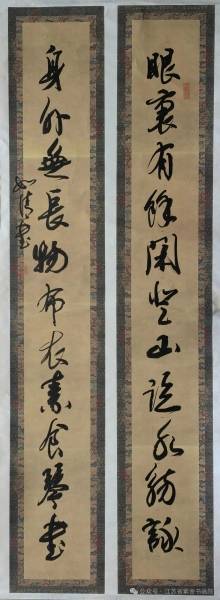 眼裏有餘閑登山臨水觴詠
身外無長物布衣素食琴書
公众号 · 江苏省